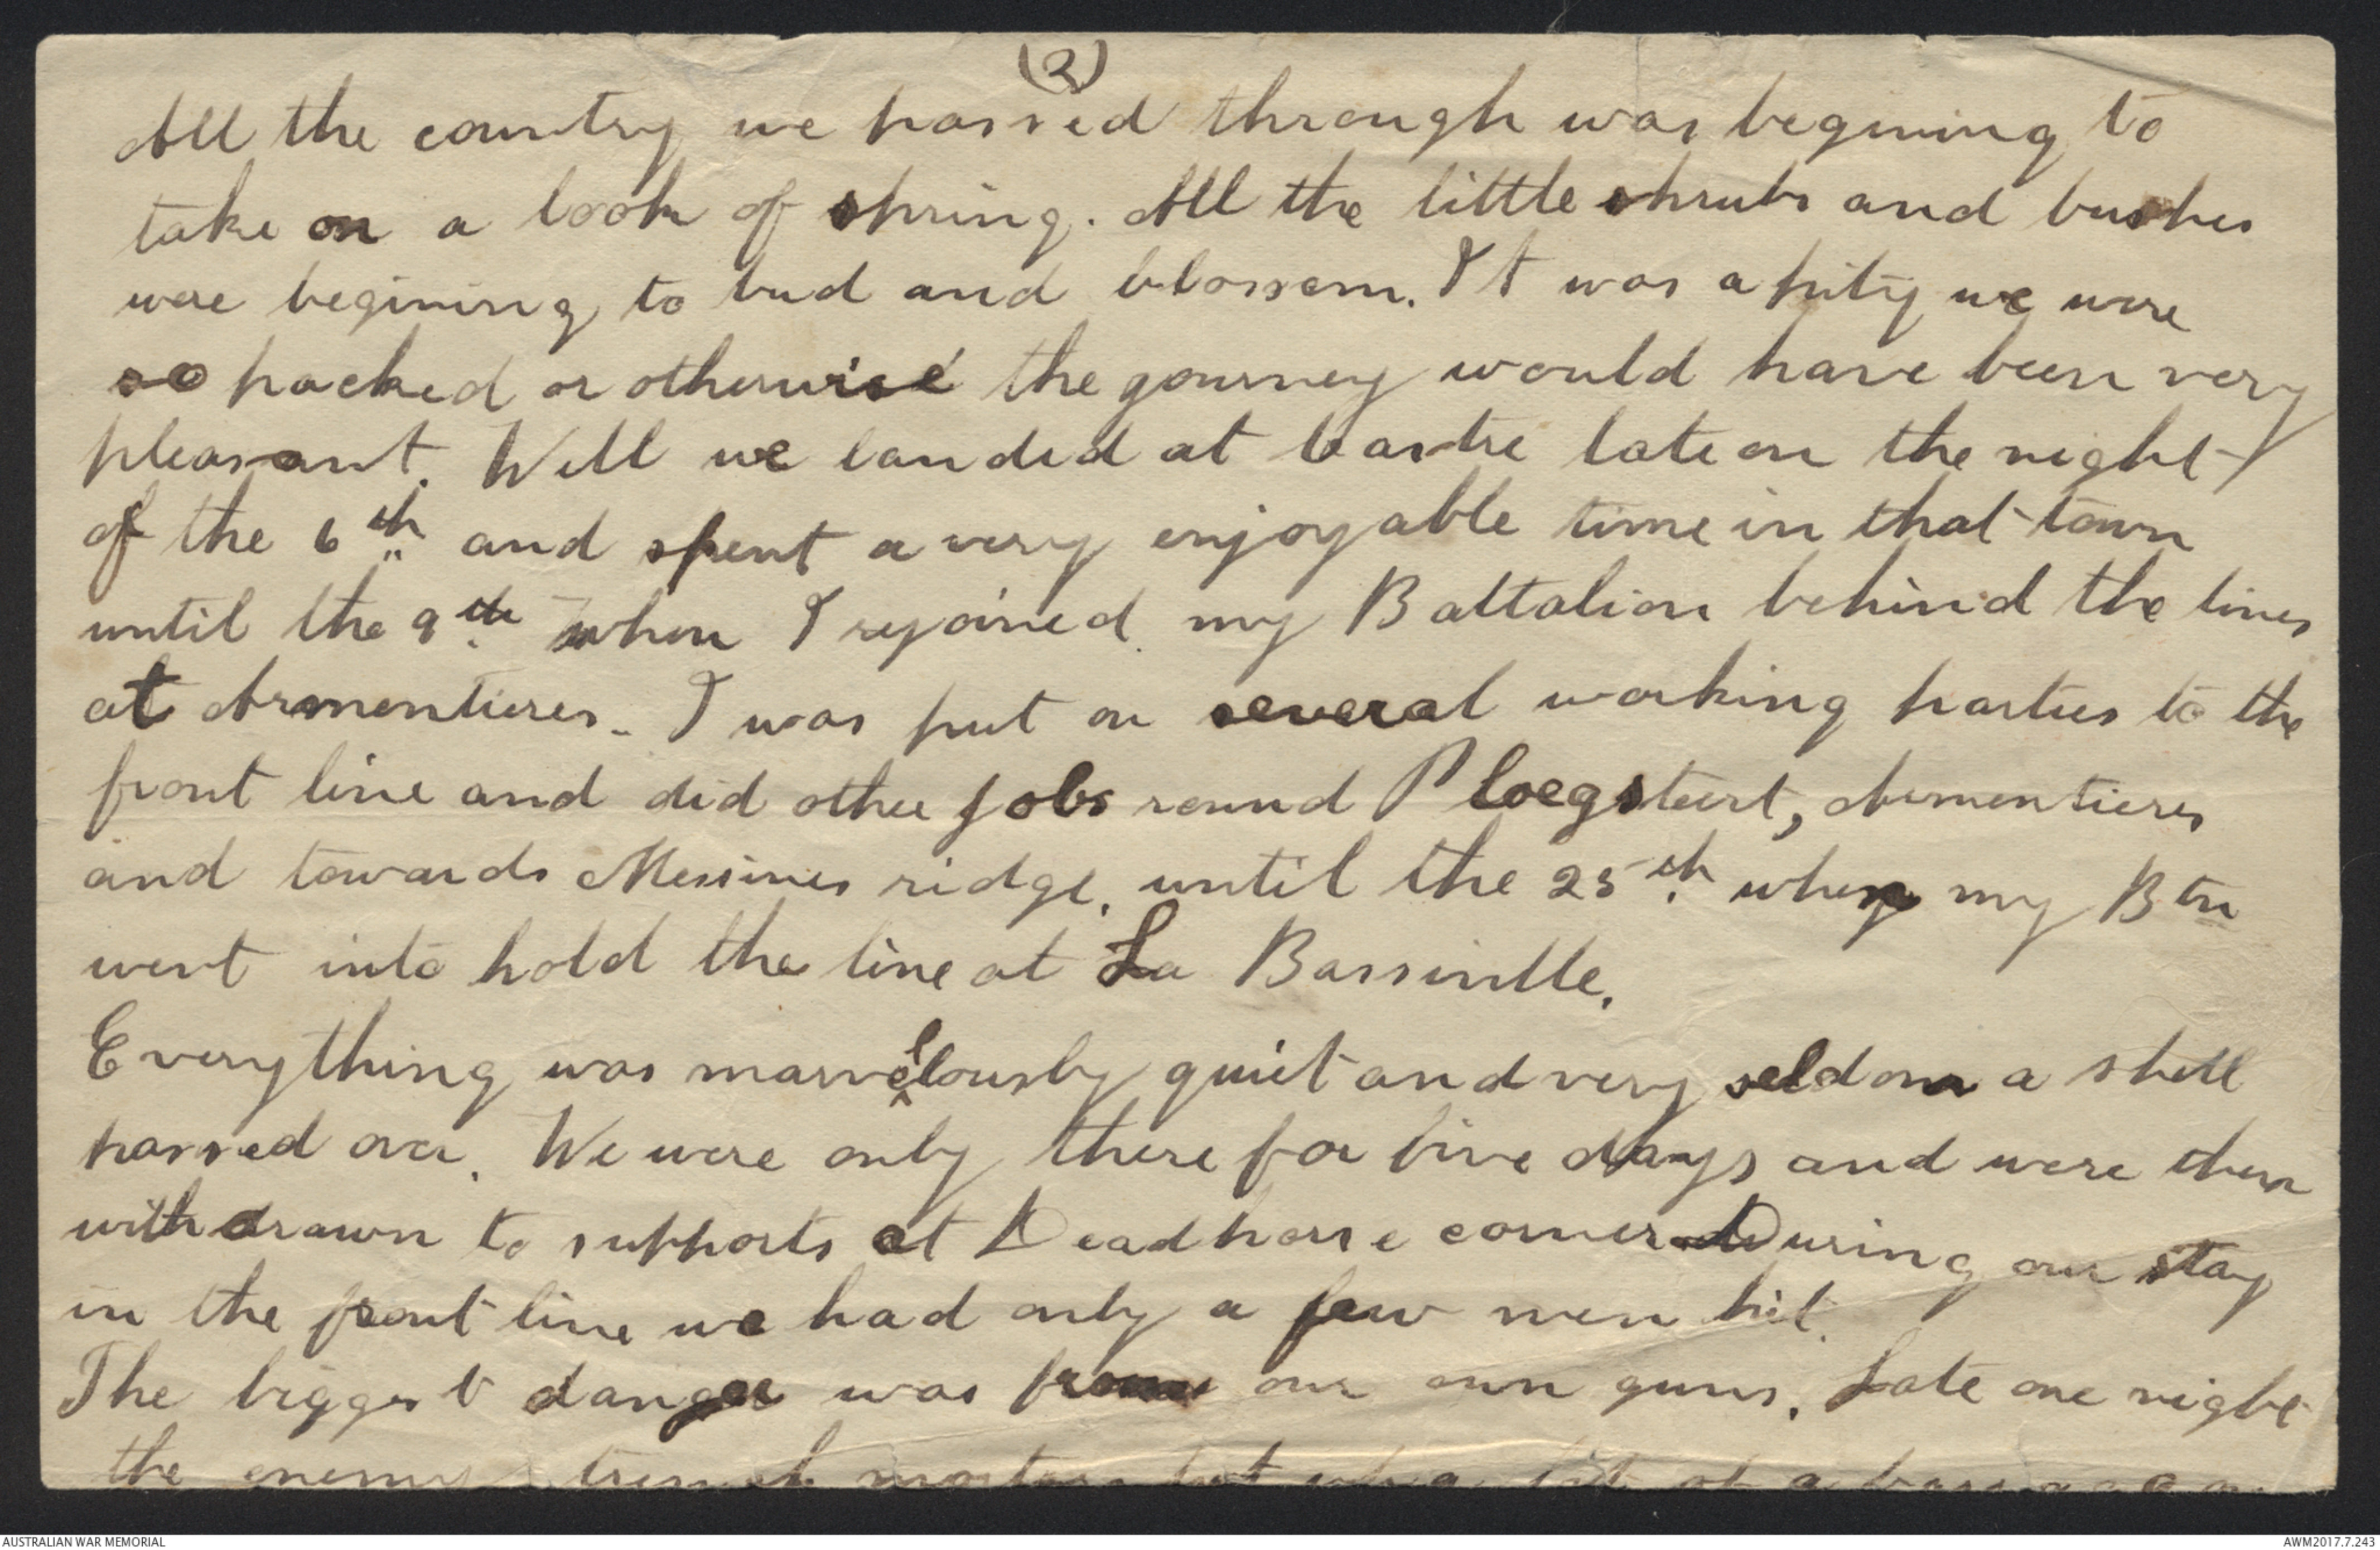 (2)
All the country we passed through was begining to
take on a look of spring. All the little shrubs and bushes
were begining to bud and blossom. It was a pity we were
so packed or otherwise the journey would have been very
pleasant. Well we landed at Caestre late on the night
of the 6th and spent a very enjoyable time in that town
until the 9th when I rejoined my Battalion behind the lines
at Armentieres. I was put on several working parties to the
front line and did other jobs round Ploegsteert, Armentieres
and towards Messines ridge, until the 25th when my Btn
went into hold the line at La Bassinille.
Everything was marvellously quiet and very seldom a shell
passed over. We were only there for five days and were then
withdrawn to supports at Deadhorse corner During our stay
in the front line we had only a few men hit.
The biggest danger was from our own guns. Late one night
the enemy trench mortars put up a bit of a barrage on
AUSTRALIAN WAR MEMORIAL
AWM2017.7.243